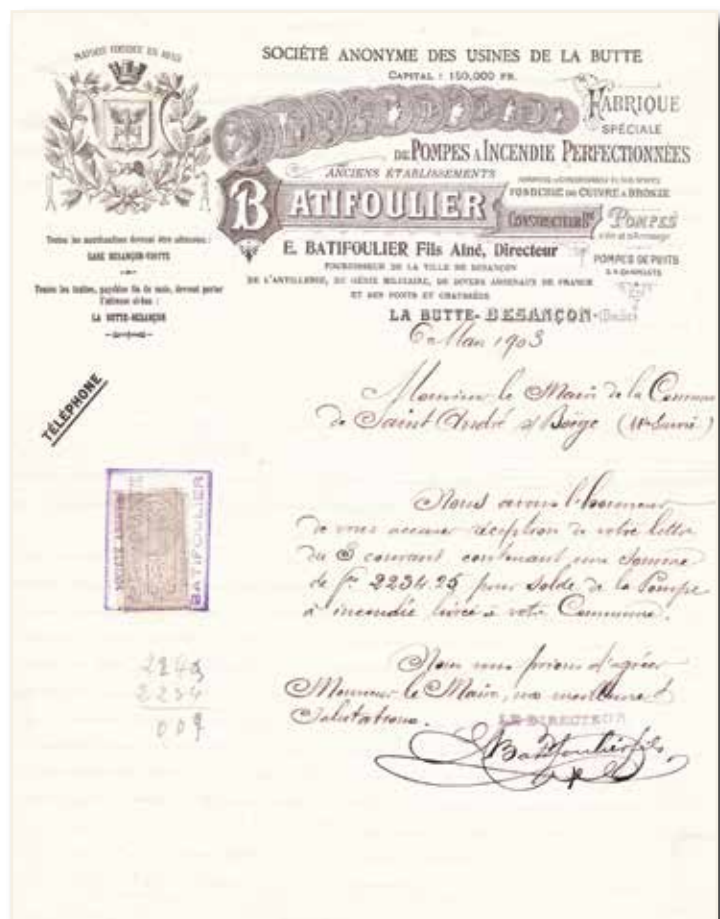 MAISON FONDÉE EN
SOCIÉTÉ ANONYME DES USINES DE LA BUTTE
CAPITAL : 150,000 FR.
FABRIQUE
SPÉCIALE
DE POMPES A INCENDIE PERFECTIONNÉES
ANCIENS ÉTABLISSEMENTS
FONDERIE DE CUIVRE & BRONZE
BATIFOULIER
CONSTRUCTEUR
POMPES
E. BATIFOULIER Fils Aîné, Directeur
POMPES DE PUITS
FOURNISSEUR DE LA VILLE DE BESANÇON
DE L'ARTILLERIE, DU GÉNIE MILITAIRE, DE DIVERS ARSENAUX DE FRANCE
ET DES PONTS ET CHAUSSÉES
LA BUTTE-BESANÇON-(Doubs)
Toutes les marchandises devront être adressées :
GARE BESANÇON-VIOTTE
Toutes les traites, payables fin de mois, devront porter
l'adresse ci-bas :
LA BUTTE-BESANÇON
6 Mars 1903
TÉLÉPHONE
Monsieur le Maire de la Commune
de Saint André s/ Boëge (Hte Savoie)
SOCIÉTÉ ANONYME
BATIFOULIER
Nous avons l'honneur
de vous accuser réception de votre lettre
du 5 courant contenant une somme
de frs 2234.25 pour solde de la Pompe
à incendie livrée à votre Commune.
2243
2234
009
Nous vous prions d'agréer
Monsieur le Maire, nos meilleures
Salutations.
LE DIRECTEUR
E Batifoulier fils